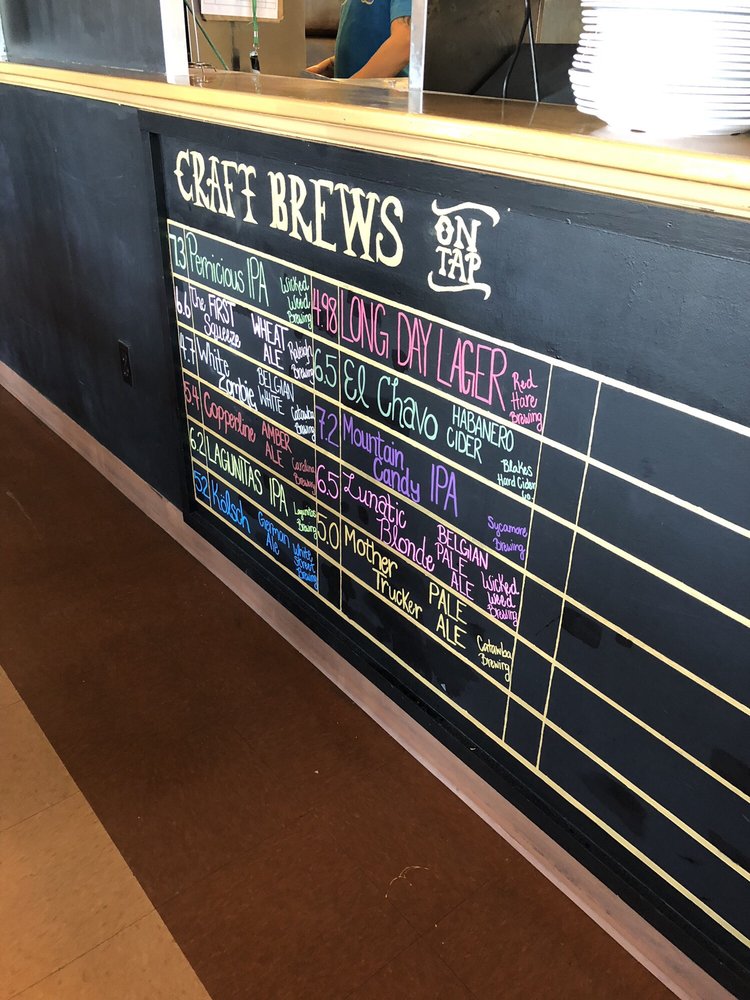 CRAFT BREWS ON TAP
7.3 Pernicious IPA Wicked Weed Brewing
6.6 The FIRST Squeeze WHEAT ALE Raleigh Brewing
4.7 White Zombie BELGIAN WHITE Catawba Brewing
5.4 Copperline AMBER ALE Carolina Brewing
6.2 LAGUNITAS IPA Lagunitas Brewing
5.2 Kölsch German Ale White Street Brewing
4.98 LONG DAY LAGER Red Hare Brewing
6.5 El Chavo HABANERO CIDER Blakes Hard Cider Co.
7.2 Mountain Candy IPA Sycamore Brewing
6.5 Lunatic Blonde BELGIAN PALE ALE Wicked Weed Brewing
5.0 Mother Trucker PALE ALE Catawba Brewing